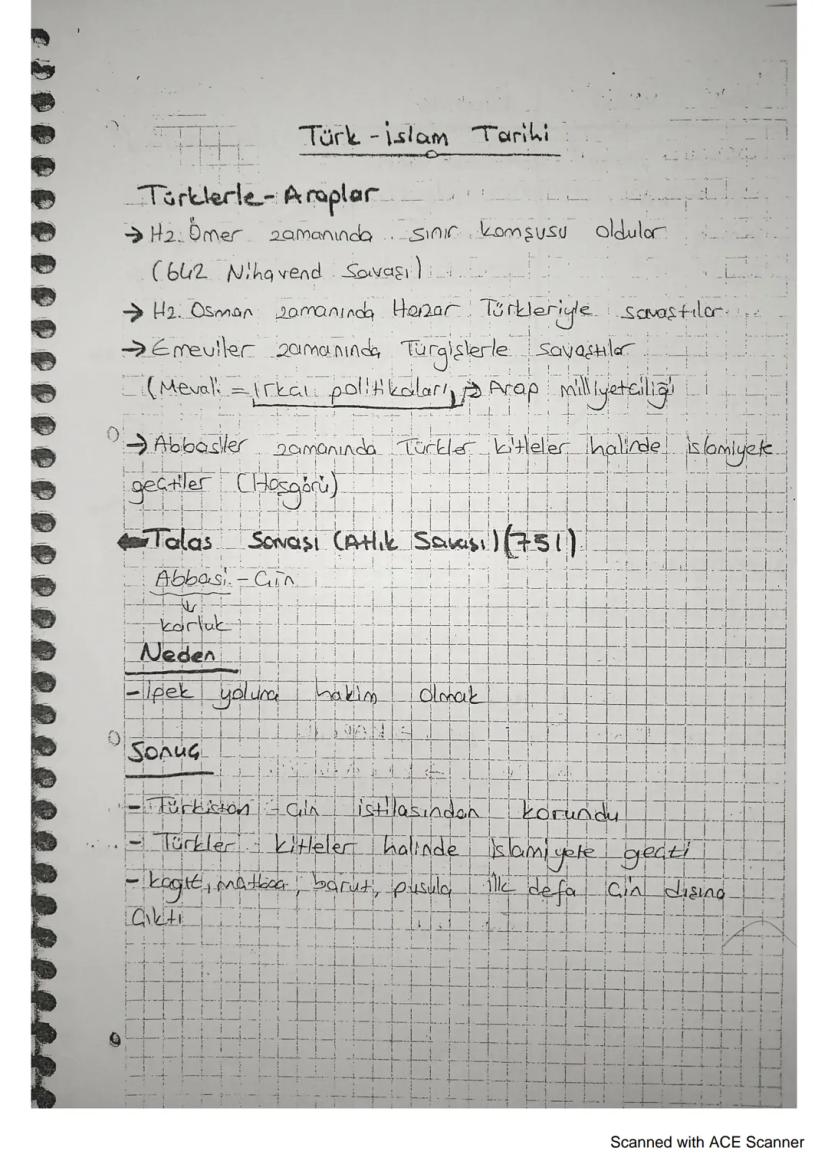 Türk-islam Tarihi
Türklerle-Araplar
→ Hz. Ömer zamanında sınır komşusu oldular
(642 Nihavend Savaşı)
→ Hz. Osman zamanında Hazar Türkleriyle savaştılar
→ Emeviler zamanında Türgişlerle savaştılar
(Mevali = Irkçı politikaları) → Arap milliyetçiliği
→ Abbasiler zamanında Türkler kitleler halinde islamiyete
geçtiler (Hoşgörü)
Talas Savaşı (Atlık Savaşı) (751)
Abbasi - Çin
↓
karluk
Neden
- İpek yoluna hakim olmak
Sonuç
- Türkistan Çin istilasından korundu
- Türkler kitleler halinde islamiyete geçti
- kağıt, matbaa, barut, pusula ilk defa Çin dışına
Çıktı
Scanned with ACE Scanner